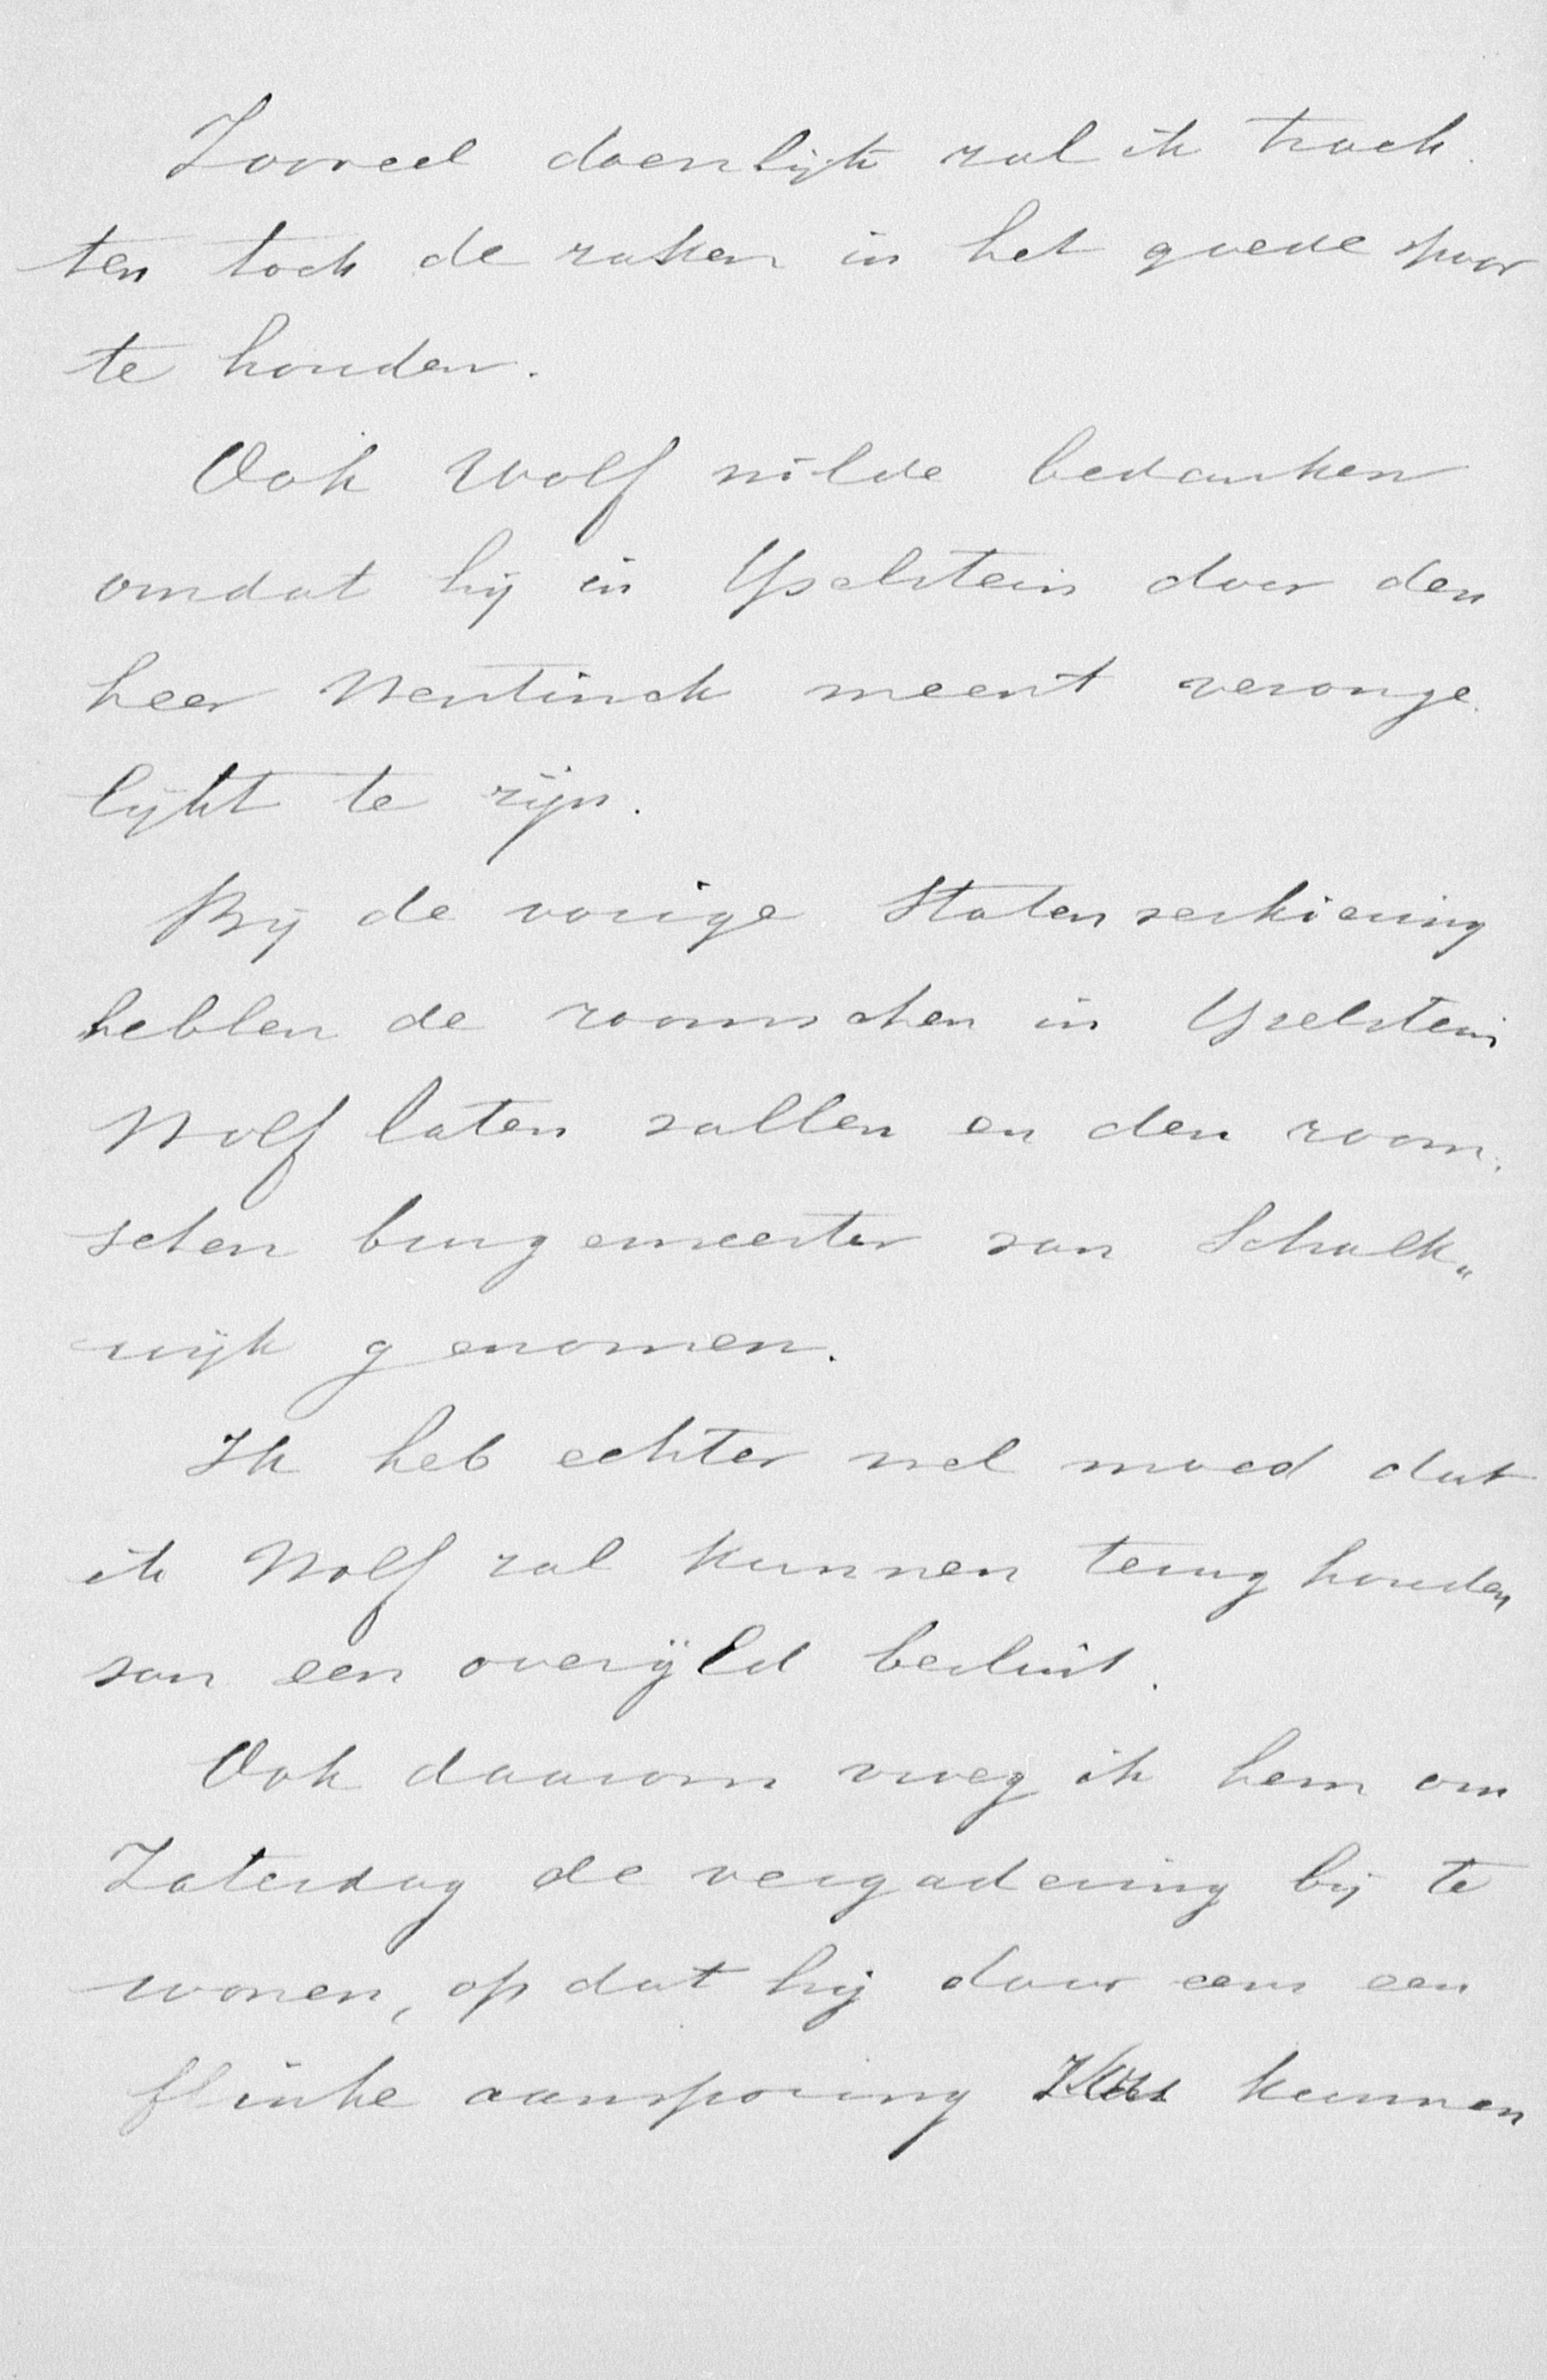 Zooveel doenlijk zal ik trach-
ten toch de zaken in het goede spoor
te houden.
Ook Wolf wilde bedanken
omdat hij in IJselstein door den
heer Wentinck meent veronge-
lijkt te zijn.
Bij de vorige Statenverkiezing
hebben de roomschen in IJselstein
Wolf laten vallen en den room-
schen burgemeester van Schalk„
wijk genomen.
Ik heb echter wel moed dat
ik Wolf zal kunnen terughouden
van een overijld besluit.
Ook daarom vroeg ik hem om
Zaterdag de vergadering bij te
wonen, op dat hij daar eens een
flinke aansporing kunnen